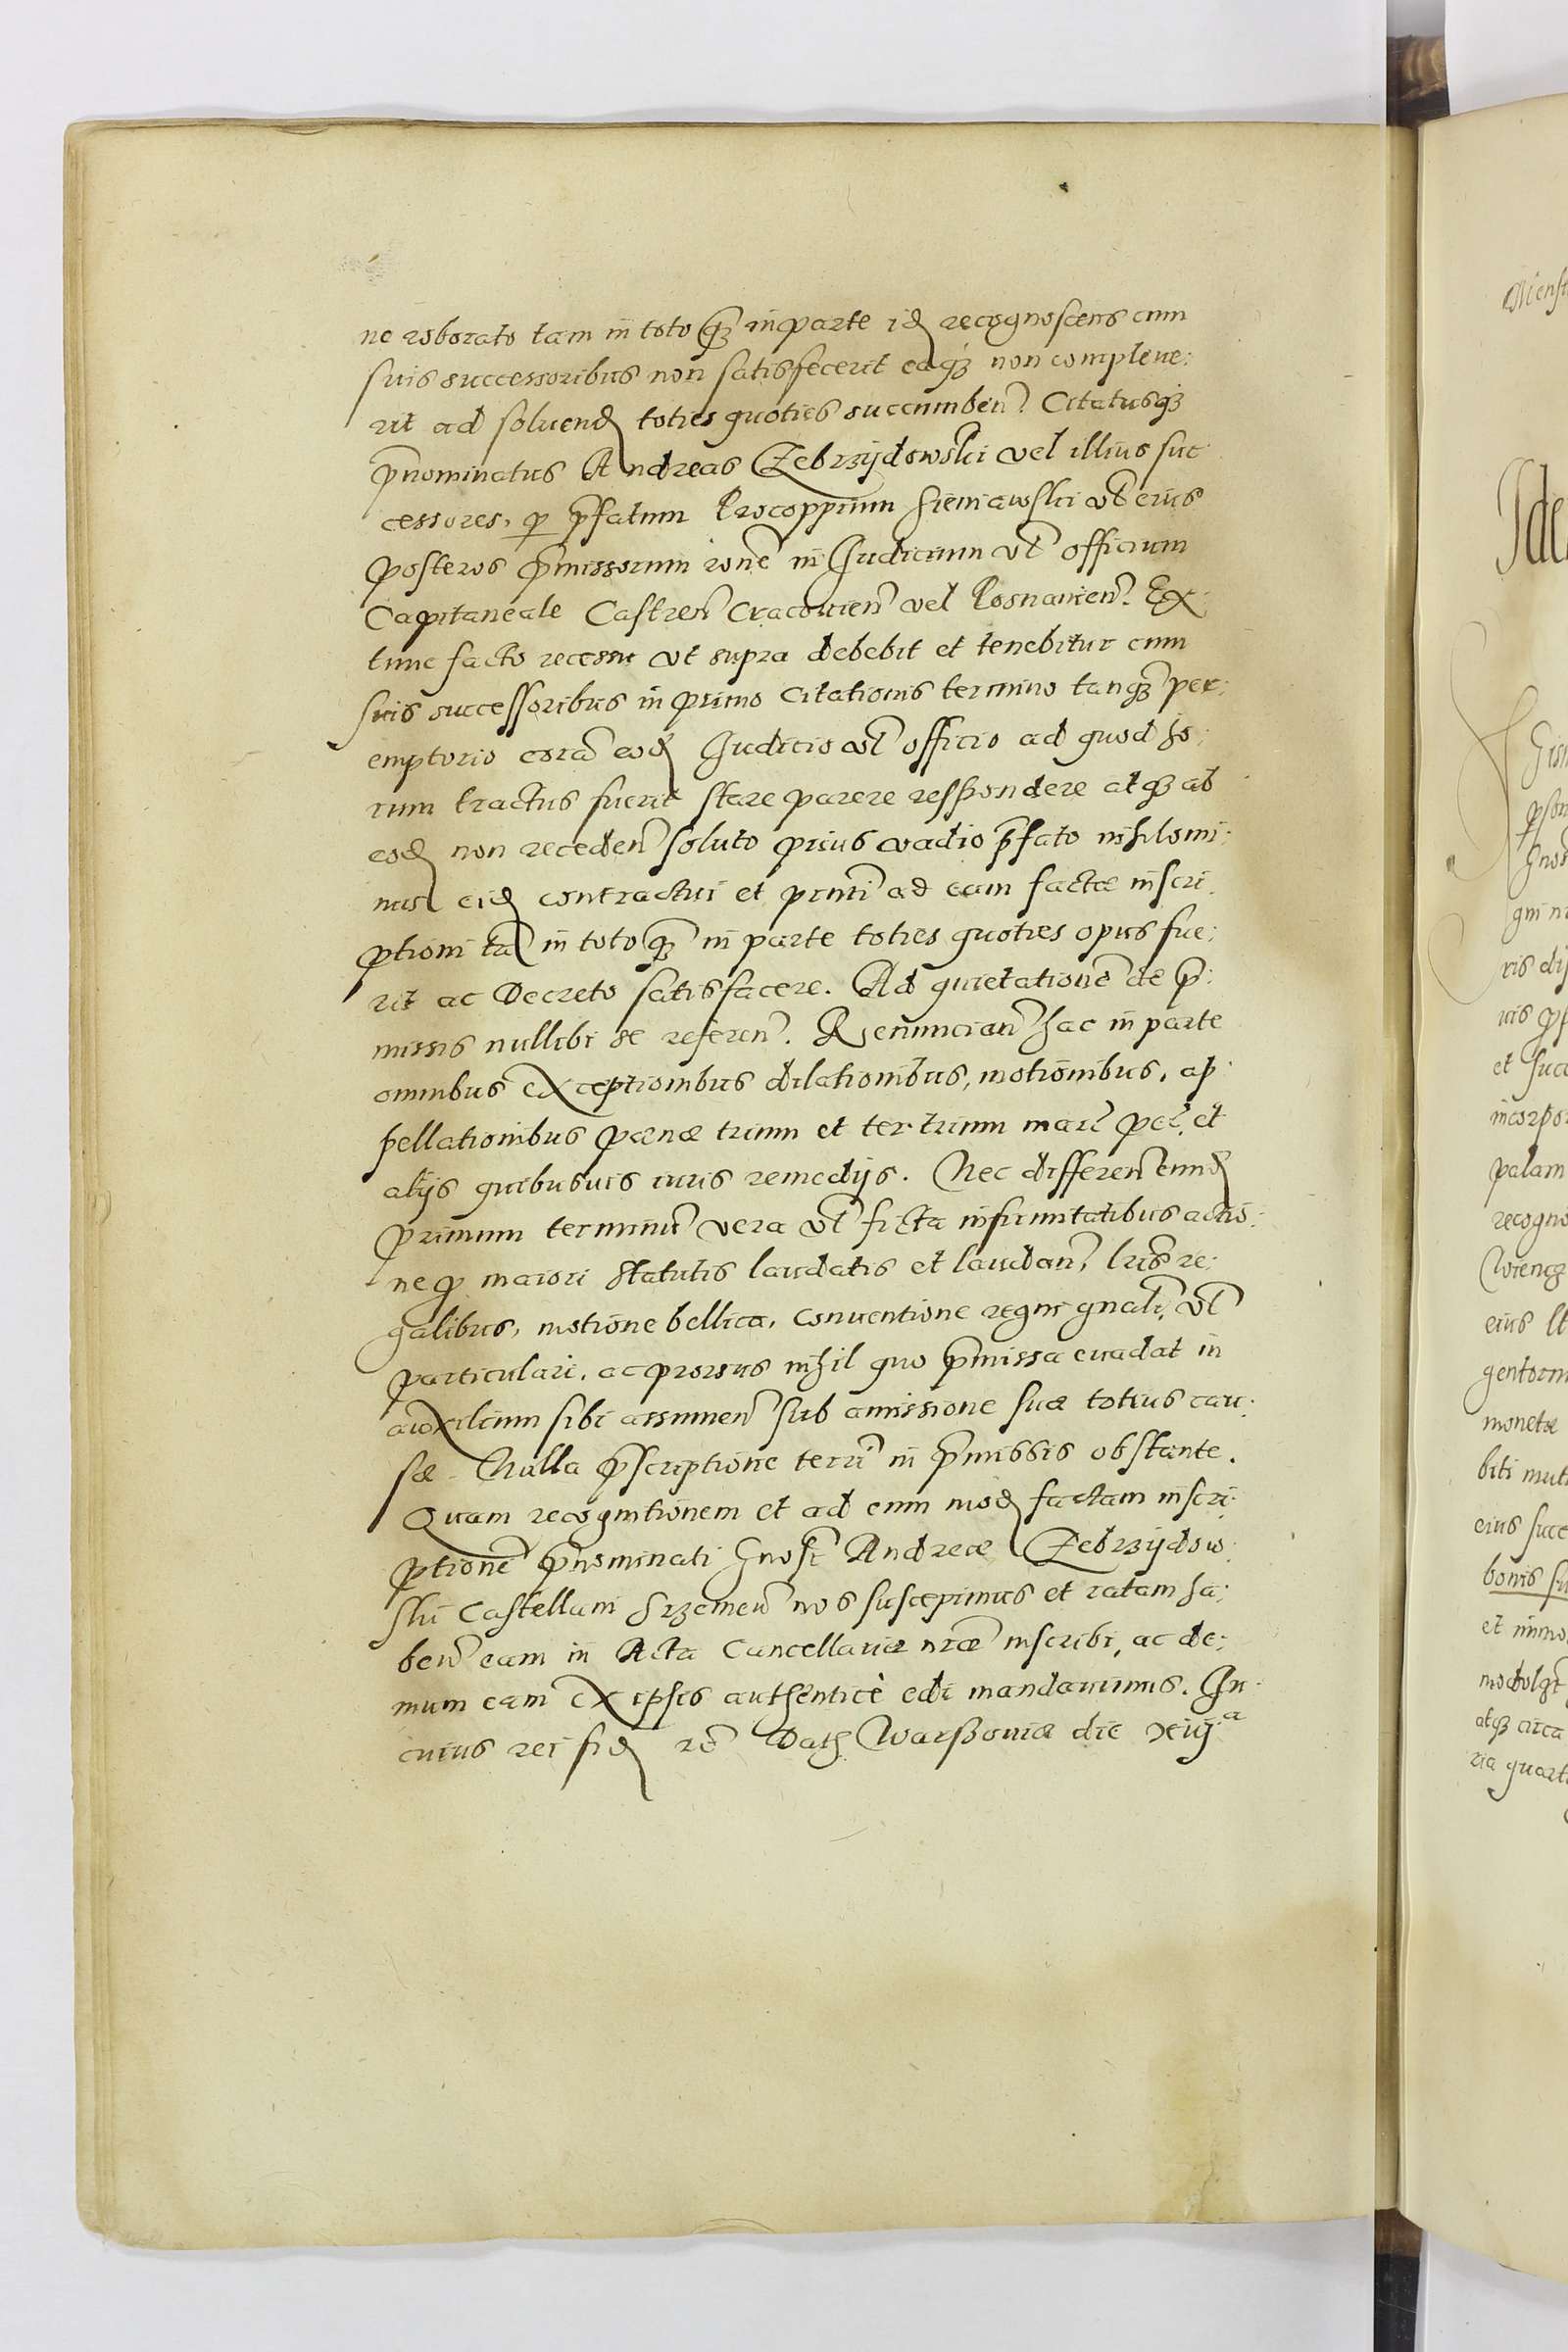 ne roborato tam in toto q̃ʒ in parte idẽ recognoscens cum
suis successoribus non satisfecerit eaqʒ non compleue:
rit ad soluend toties quoties succumben̄. Citatusqʒ
p̄nominatus Andreas Zebrzÿdowski vel illius suc
cessores, p p̄fatum Procoppium Sieniawski vl̄ eius
posteros p̄missorum rōne in Judicium vl̄ officium
Capitaneale Castren̄ Cracouien̄ vel Posnanien̄. Ex
tunc facto recessu vt supra debebit et tenebitur cum
suis successoribus in primo Citationis termino tanq̃ʒ per:
emptorio corā eod Juditio vl̄ officio ad quod ho:
rum tractus fuerit stare parere respondere atqʒ ab
eod non receden̄ soluto prius vadio p̄fato nihilomi:
nus eid contractui et pn̄ti ad eam factæ inscri
ptioni tā in toto q̃ʒ in parte toties quoties opus fue:
rit ac Decreto satisfacere. Ad quietationē de p̄:
missis nullibi se referen̄. Renuncian̄ hac in parte
omnibus exceptionibus dilationibus, motionibus, ap
pellationibus pænæ trium et ter trium mar̄ pec̄. et
alÿs quibusuis iuris remedÿs. Nec differen̄ eund
primum terminū vera vl̄ ficta infirmitatibus actio:
ne p maiori statutis laudatis et laudan̄, lr̄is re:
galibus, motione bellica, conuentione regni gn̄ali, vl̄
particulari, ac prorsus nihil quo p̄missa euadat in
auxilium sibi assumen̄ sub amissione suæ totius cau:
sæ. Nulla p̄scriptione terr̄ in p̄missis obstante.
Quam recognitionem et ad eum mod factam inscri:
ptionē p̄nominati Gnosi Andreæ Zebrzÿdow:
ski Castellani Srzemen̄ nos suscepimus et ratam ha:
ben̄ eam in Acta Cancellariæ nr̄æ inscribi, ac de:
mum eam ex ipsis authenticè edi mandauimus. In
cuius rei fid rē Dath Warssouiæ die xiij.ᵃ